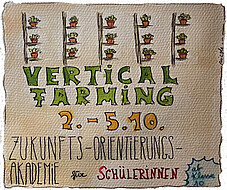 VERTICAL
FARMING
2.-5.10.
ZUKUNFTS-ORIENTIERUNGS-
AKADEMIE für SCHÜLERINNEN
ab
Klasse
10